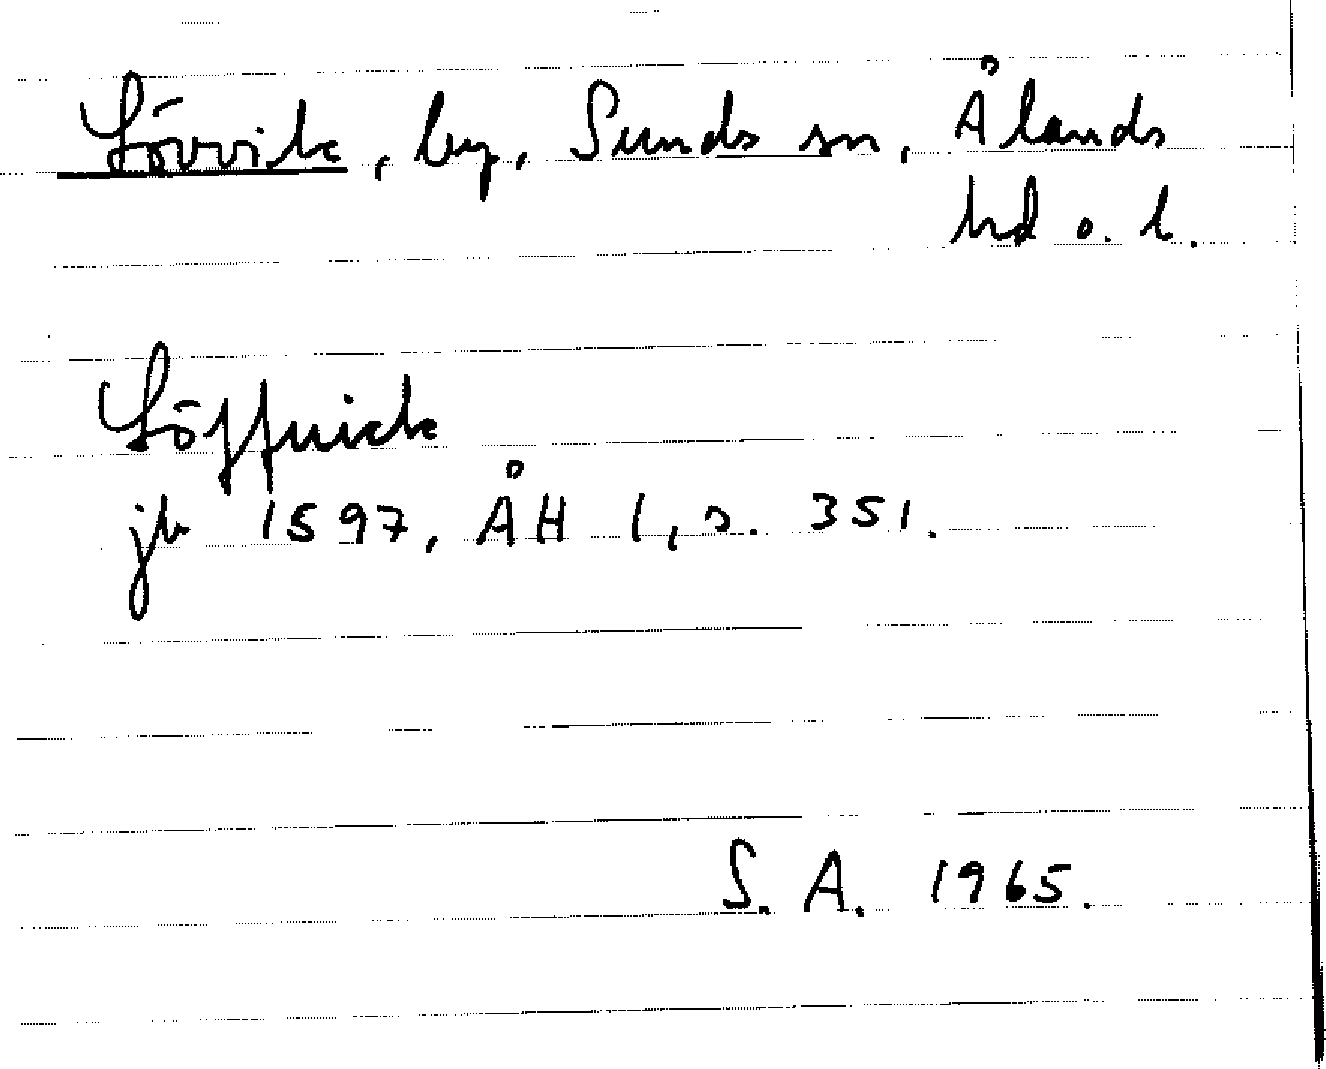 Lövvik, by, Sunds sn, Ålands
hd o. l.
Löffuick
jb 1597, ÅH 1, s. 351.
S. A. 1965.